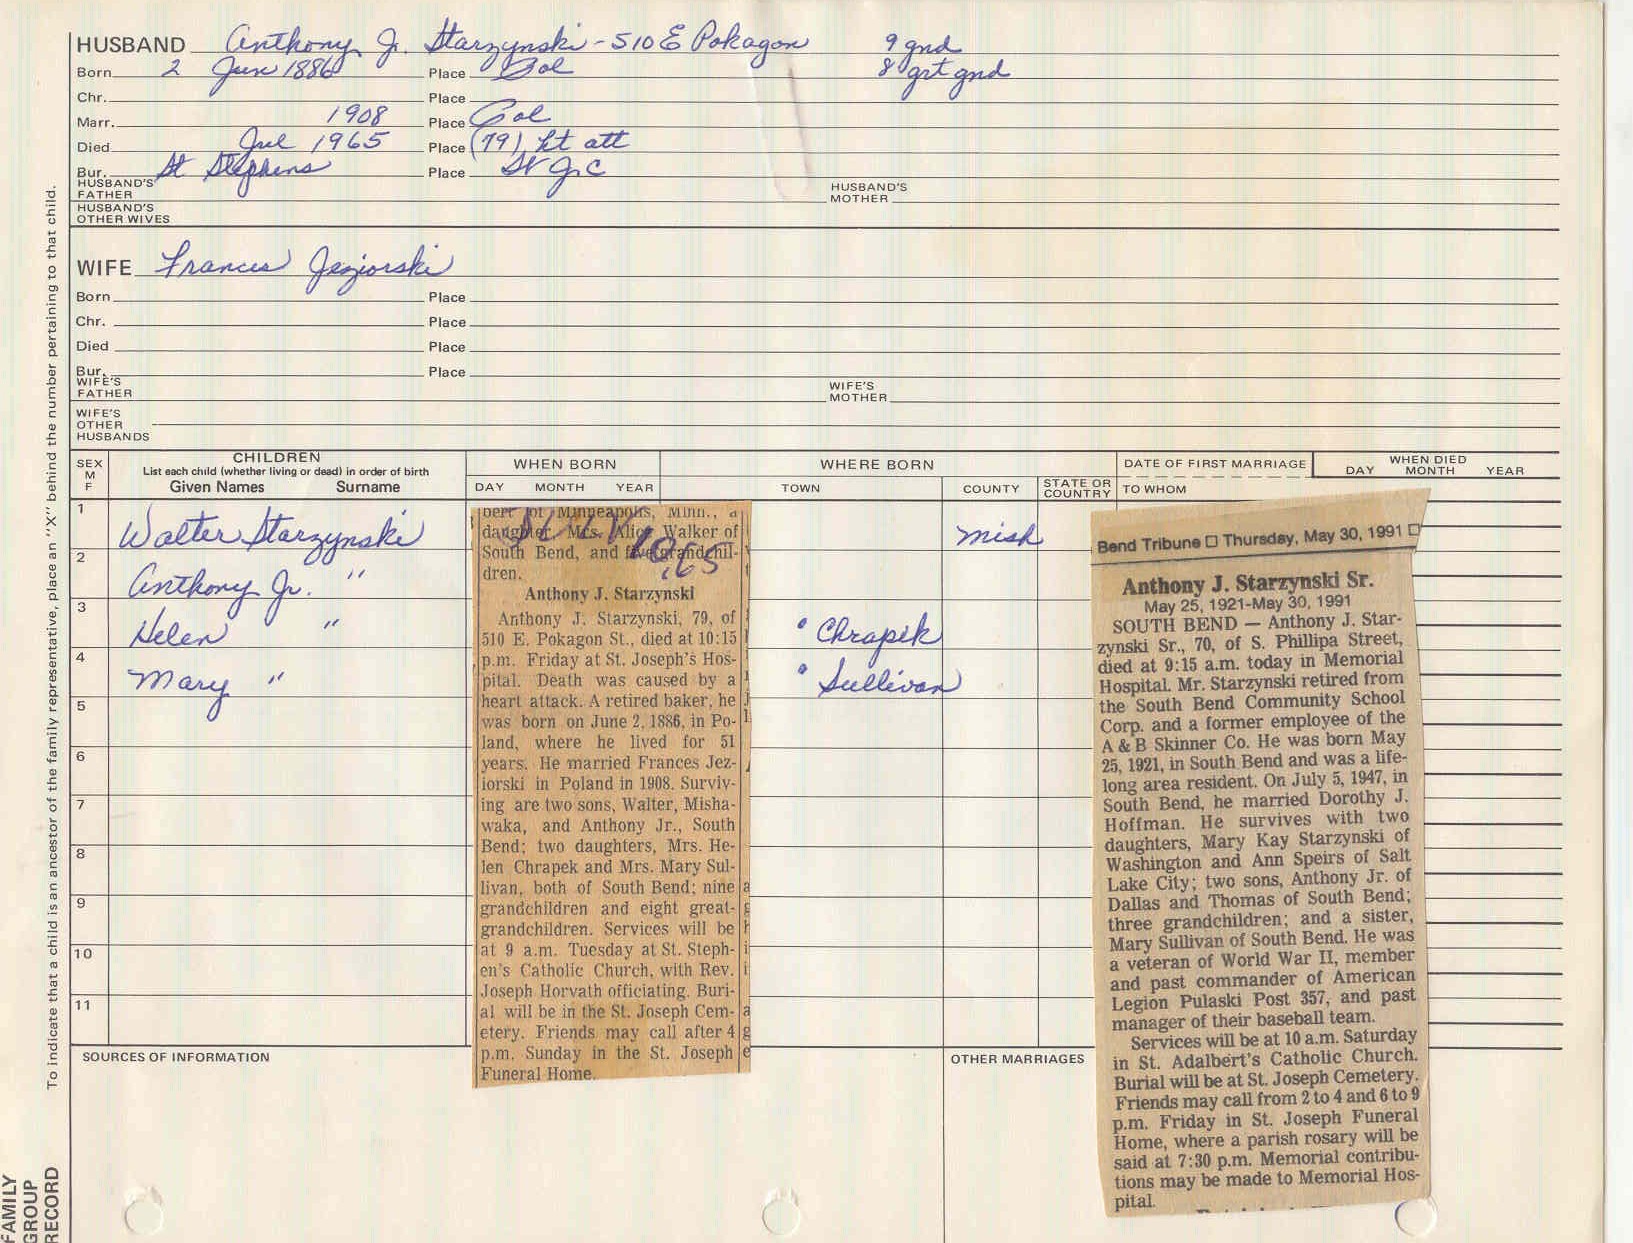 HUSBAND Anthony J. Starzynski - 510 E Pokagon 9 gnd
Born 2 Jun 1886 Place Pol 8 grt gnd
Chr. Place
Marr. 1908 Place Pol
Died Jul 1965 Place (79) ht att
Bur. St Stephens Place St J.C
HUSBAND'S FATHER HUSBAND'S MOTHER
HUSBAND'S OTHER WIVES
WIFE Frances Jeziorski
Born Place
Chr. Place
Died Place
Bur. Place
WIFE'S FATHER WIFE'S MOTHER
WIFE'S OTHER HUSBANDS
SEX M F
CHILDREN
List each child (whether living or dead) in order of birth
Given Names Surname
WHEN BORN
DAY MONTH YEAR
WHERE BORN
TOWN COUNTY STATE OR COUNTRY
DATE OF FIRST MARRIAGE
TO WHOM
WHEN DIED
DAY MONTH YEAR
1 Walter Starzynski Mish
2 Anthony Jr. "
3 Helen " Chrapek
4 Mary " Sullivan
5
6
7
8
9
10
11
SOURCES OF INFORMATION
OTHER MARRIAGES
bert of Minneapolis, Minn., a
daughter, Mrs. Alice Walker of
South Bend, and five grandchil-
dren.
Anthony J. Starzynski
Anthony J. Starzynski, 79, of
510 E. Pokagon St., died at 10:15
p.m. Friday at St. Joseph's Hos-
pital. Death was caused by a
heart attack. A retired baker, he
was born on June 2, 1886, in Po-
land, where he lived for 51
years. He married Frances Jez-
iorski in Poland in 1908. Surviv-
ing are two sons, Walter, Misha-
waka, and Anthony Jr., South
Bend; two daughters, Mrs. He-
len Chrapek and Mrs. Mary Sul-
livan, both of South Bend; nine
grandchildren and eight great-
grandchildren. Services will be
at 9 a.m. Tuesday at St. Steph-
en's Catholic Church, with Rev.
Joseph Horvath officiating. Buri-
al will be in the St. Joseph Cem-
etery. Friends may call after 4
p.m. Sunday in the St. Joseph
Funeral Home.
Bend Tribune □ Thursday, May 30, 1991 □
Anthony J. Starzynski Sr.
May 25, 1921-May 30, 1991
SOUTH BEND — Anthony J. Star-
zynski Sr., 70, of S. Phillipa Street,
died at 9:15 a.m. today in Memorial
Hospital. Mr. Starzynski retired from
the South Bend Community School
Corp. and a former employee of the
A & B Skinner Co. He was born May
25, 1921, in South Bend and was a life-
long area resident. On July 5, 1947, in
South Bend, he married Dorothy J.
Hoffman. He survives with two
daughters, Mary Kay Starzynski of
Washington and Ann Speirs of Salt
Lake City; two sons, Anthony Jr. of
Dallas and Thomas of South Bend;
three grandchildren; and a sister,
Mary Sullivan of South Bend. He was
a veteran of World War II, member
and past commander of American
Legion Pulaski Post 357, and past
manager of their baseball team.
Services will be at 10 a.m. Saturday
in St. Adalbert's Catholic Church.
Burial will be at St. Joseph Cemetery.
Friends may call from 2 to 4 and 6 to 9
p.m. Friday in St. Joseph Funeral
Home, where a parish rosary will be
said at 7:30 p.m. Memorial contribu-
tions may be made to Memorial Hos-
pital.
To indicate that a child is an ancestor of the family representative, place an "X" behind the number pertaining to that child.
FAMILY
GROUP
RECORD